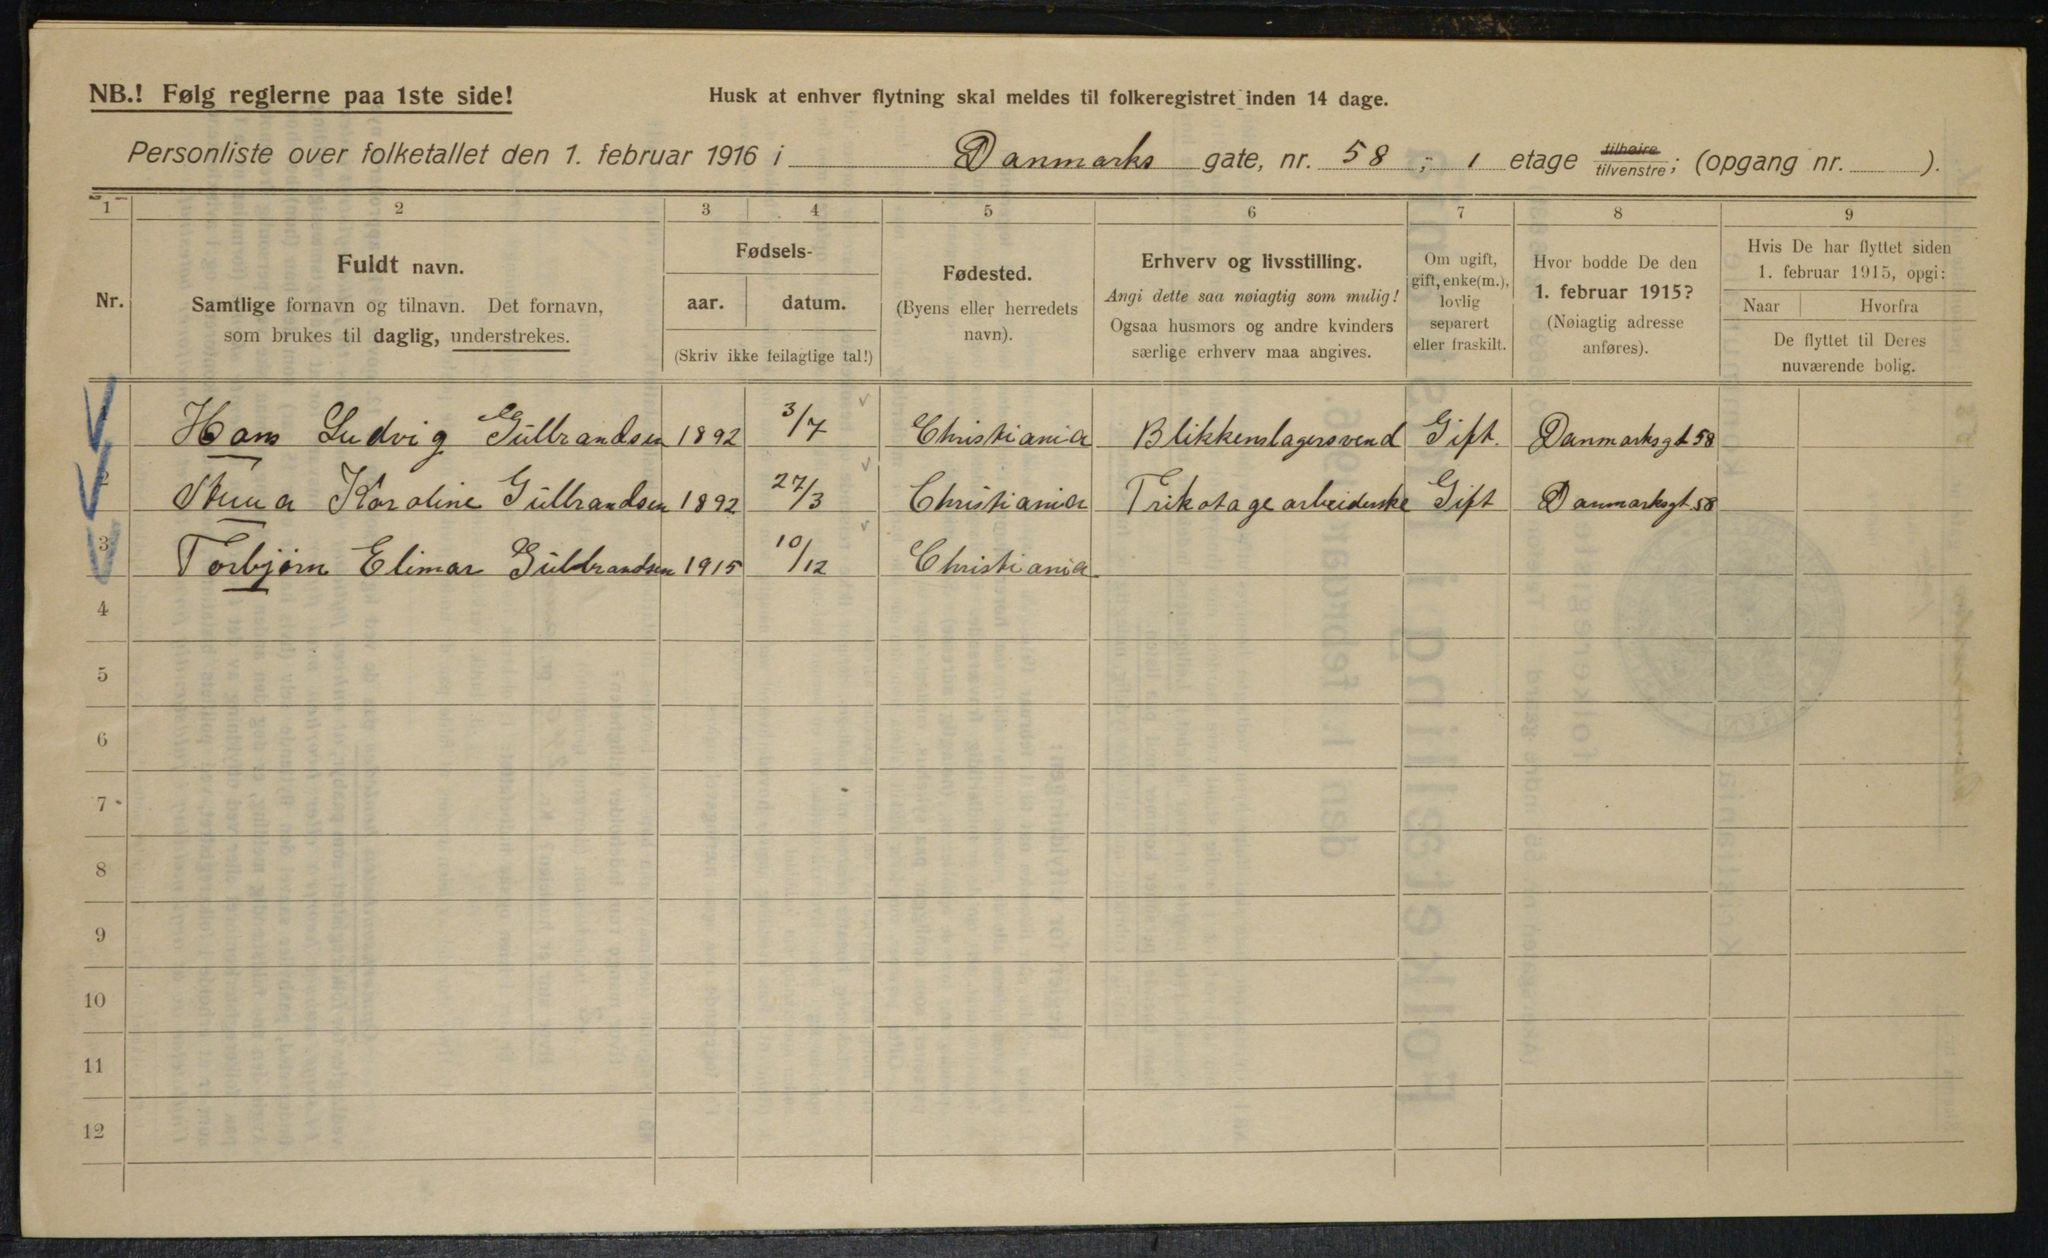 NB.! Følg reglerne paa 1ste side!
Husk at enhver flytning skal meldes til folkeregistret inden 14 dage.
Personliste over folketallet den 1. februar 1916 i Danmarks gate, nr. 58 ; 1 etage tilhøire/tilvenstre; (opgang nr. ).
1 2 3 4 5 6 7 8 9
Nr.
Fuldt navn.
Samtlige fornavn og tilnavn. Det fornavn,
som brukes til daglig, understrekes.
Fødsels-
aar. datum.
(Skriv ikke feilagtige tal!)
Fødested.
(Byens eller herredets
navn).
Erhverv og livsstilling.
Angi dette saa nøiagtig som mulig!
Ogsaa husmors og andre kvinders
særlige erhverv maa angives.
Om ugift,
gift, enke(m.),
lovlig
separert
eller fraskilt.
Hvor bodde De den
1. februar 1915?
(Nøiagtig adresse
anføres).
Hvis De har flyttet siden
1. februar 1915, opgi:
Naar Hvorfra
De flyttet til Deres
nuværende bolig.
Hans Ludvig Gulbrandsen 1892 3/7 Christiania Blikkenslagersvend Gift. Danmarksgt 58
2 Karoline Gulbrandsen 1892 27/3 Christiania Trikotagearbeiderske Gift Danmarksgt 58
3 Torbjørn Elimar Gulbrandsen 1915 10/12 Christiania
4
5
6
7
8
9
10
11
12